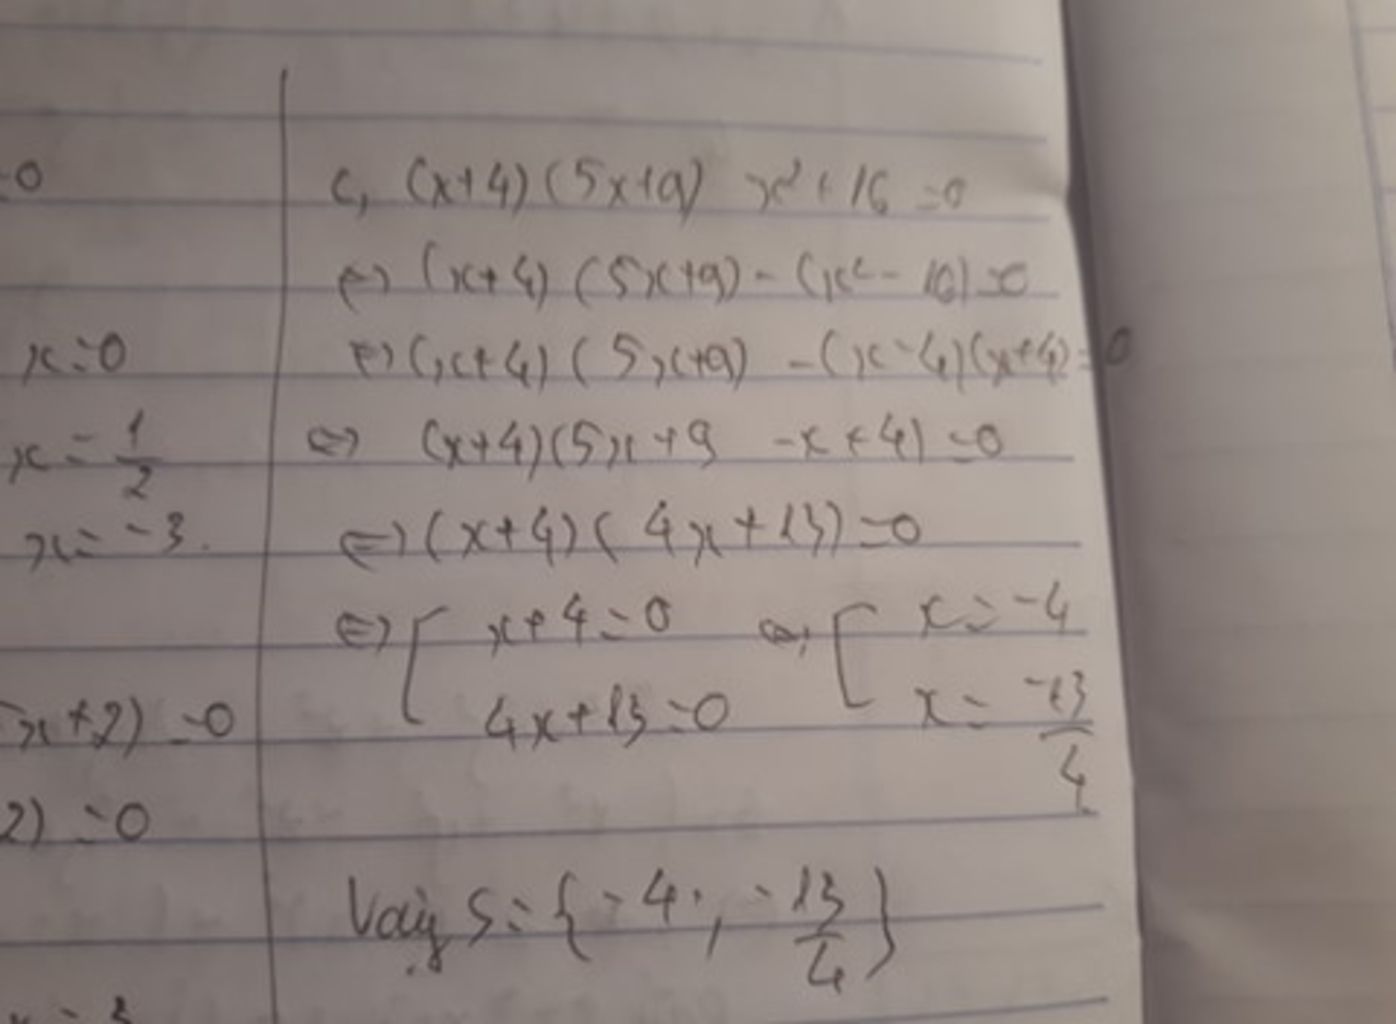 =0
x=0
x = 1/2
x = -3.
x+2) =0
2) =0
c, (x+4)(5x+9) x² + 16 =0
⇔ (x+4) (5x+9) - (x² - 16) =0
⇔ (x+4) (5x+9) - (x-4)(x+4) =0
⇔ (x+4)(5x+9 -x+4) =0
⇔ (x+4)( 4x+13) =0
⇔ [ x+4=0 ⇔ [ x = -4
4x+13=0 x = -13/4
Vậy S = { -4 ; -13/4 }